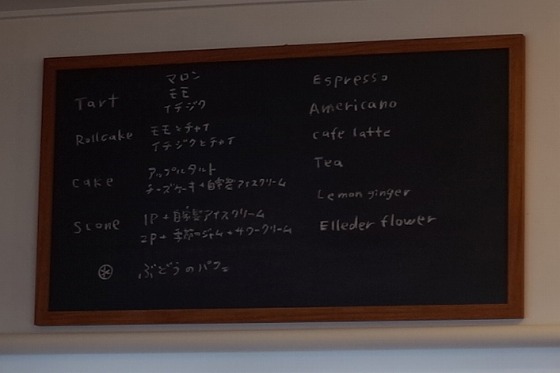 Tart マロン
モモ
イチジク
Rollcake モモとチャイ
イチジクとチャイ
cake アップルタルト
チーズケーキ+自家製アイスクリーム
Scone 1P+自家製アイスクリーム
2P+季節のジャム+サワークリーム
ぶどうのパフェ
Espresso
Americano
cafe latte
Tea
Lemon ginger
Elleder flower